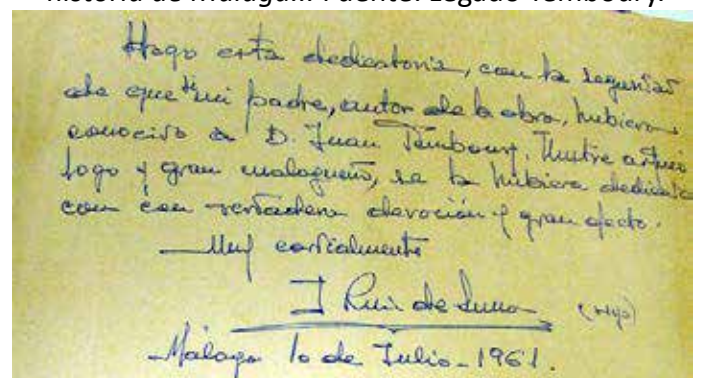 historia de Málaga... Fuente: Legado Temboury.
Hago esta dedicatoria, con la seguridad
de que si mi padre, autor de la obra, hubiera
conocido a D. Juan Temboury, Ilustre arqueo
logo y gran malagueño, se la hubiera dedicado
con verdadera devoción y gran afecto.
Muy cordialmente
J Ruiz de Luna (Hijo)
Málaga 10 de Julio-1961.